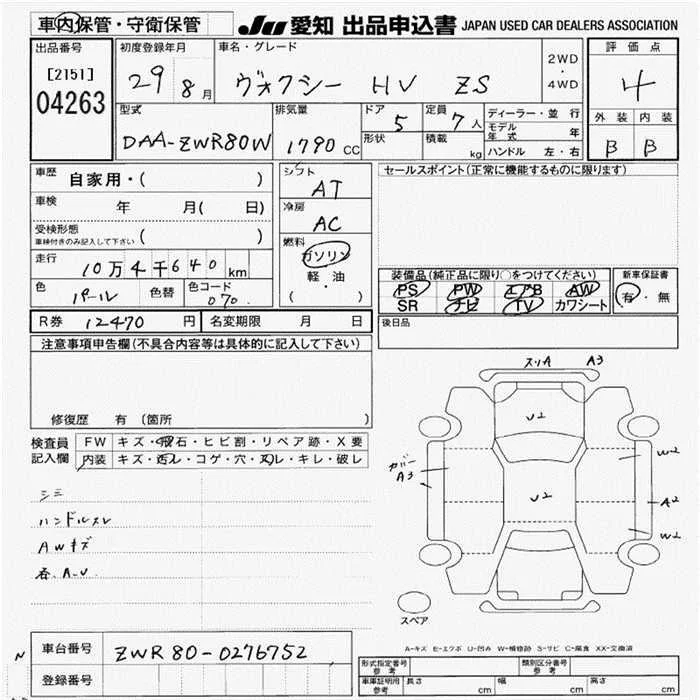 車内保管・守衛保管
JU 愛知 出品申込書 JAPAN USED CAR DEALERS ASSOCIATION
出品番号
[2151]
04263
初度登録年月
29 8月
車名・グレード
ヴォクシー HV ZS
2WD
・
4WD
評価点
4
外装 内装
B B
型式
DAA-ZWR80W
排気量
1790 CC
ドア
5
形状
定員
7人
積載
kg
ディーラー・並行
モデル年式 年
ハンドル 左・右
車歴
自家用・( )
車検
年 月( 日)
受検形態
車検付きのみ記入して下さい ( )
走行
10万4千640 km
色
パール
色替
色コード
070
シフト
AT
冷房
AC
燃料
ガソリン
軽・油
( )
セールスポイント(正常に機能するものに限ります)
装備品(純正品に限り○をつけてください)
PS PW エアB AW
SR ナビ TV カワシート
新車保証書
有・無
後日品
R券 12470 円
名変期限 月 日
注意事項申告欄(不具合内容等は具体的に記入して下さい)
修復歴 有 〔箇所 〕
検査員
記入欄
FW キズ・飛石・ヒビ割・リペア跡・X要
内装 キズ・汚レ・コゲ・穴・スレ・キレ・破レ
シミ
ハンドルスレ
AWキズ
各.A.U
スリA A3
U2
カバー
A3
U2
W2
A2
W2
スペア
A-キズ E-エクボ U-凹み W-補修跡 S-サビ C-腐食 XX-交換済
N
車台番号
ZWR80-0276752
登録番号
形式指定番号
参考
類別区分番号
参考
車庫証明用
参考
長さ cm
幅 cm
高さ cm